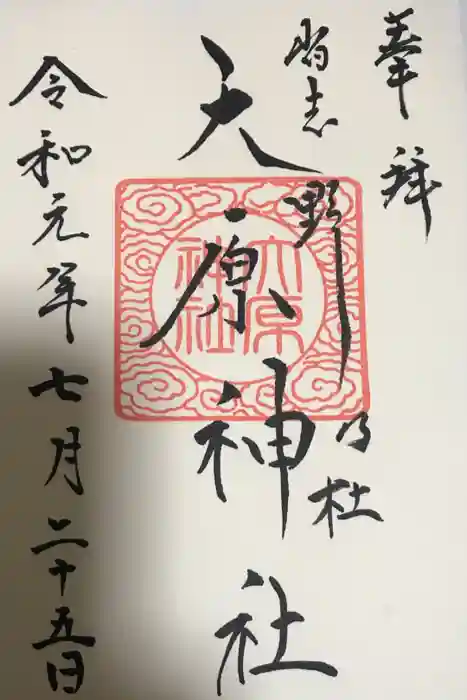 奉拝
習志野乃杜
大原神社
大原
神社
令和元年七月二十五日